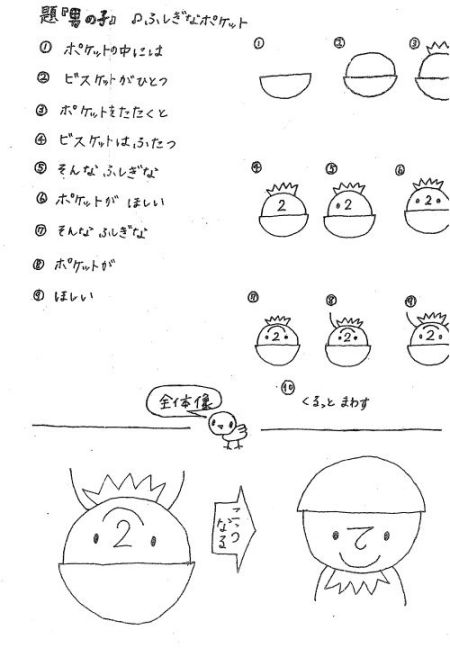 題『男の子』 ♫ふしぎなポケット
① ポケットの中には
② ビスケットがひとつ
③ ポケットをたたくと
④ ビスケットはふたつ
⑤ そんな ふしぎな
⑥ ポケットが ほしい
⑦ そんな ふしぎな
⑧ ポケットが
⑨ ほしい
① ② ③
④ ⑤ ⑥
2 2 2
⑦ ⑧ ⑨
2 2 2
⑩ くるっと まわす
全体像
2
こうつながる
2